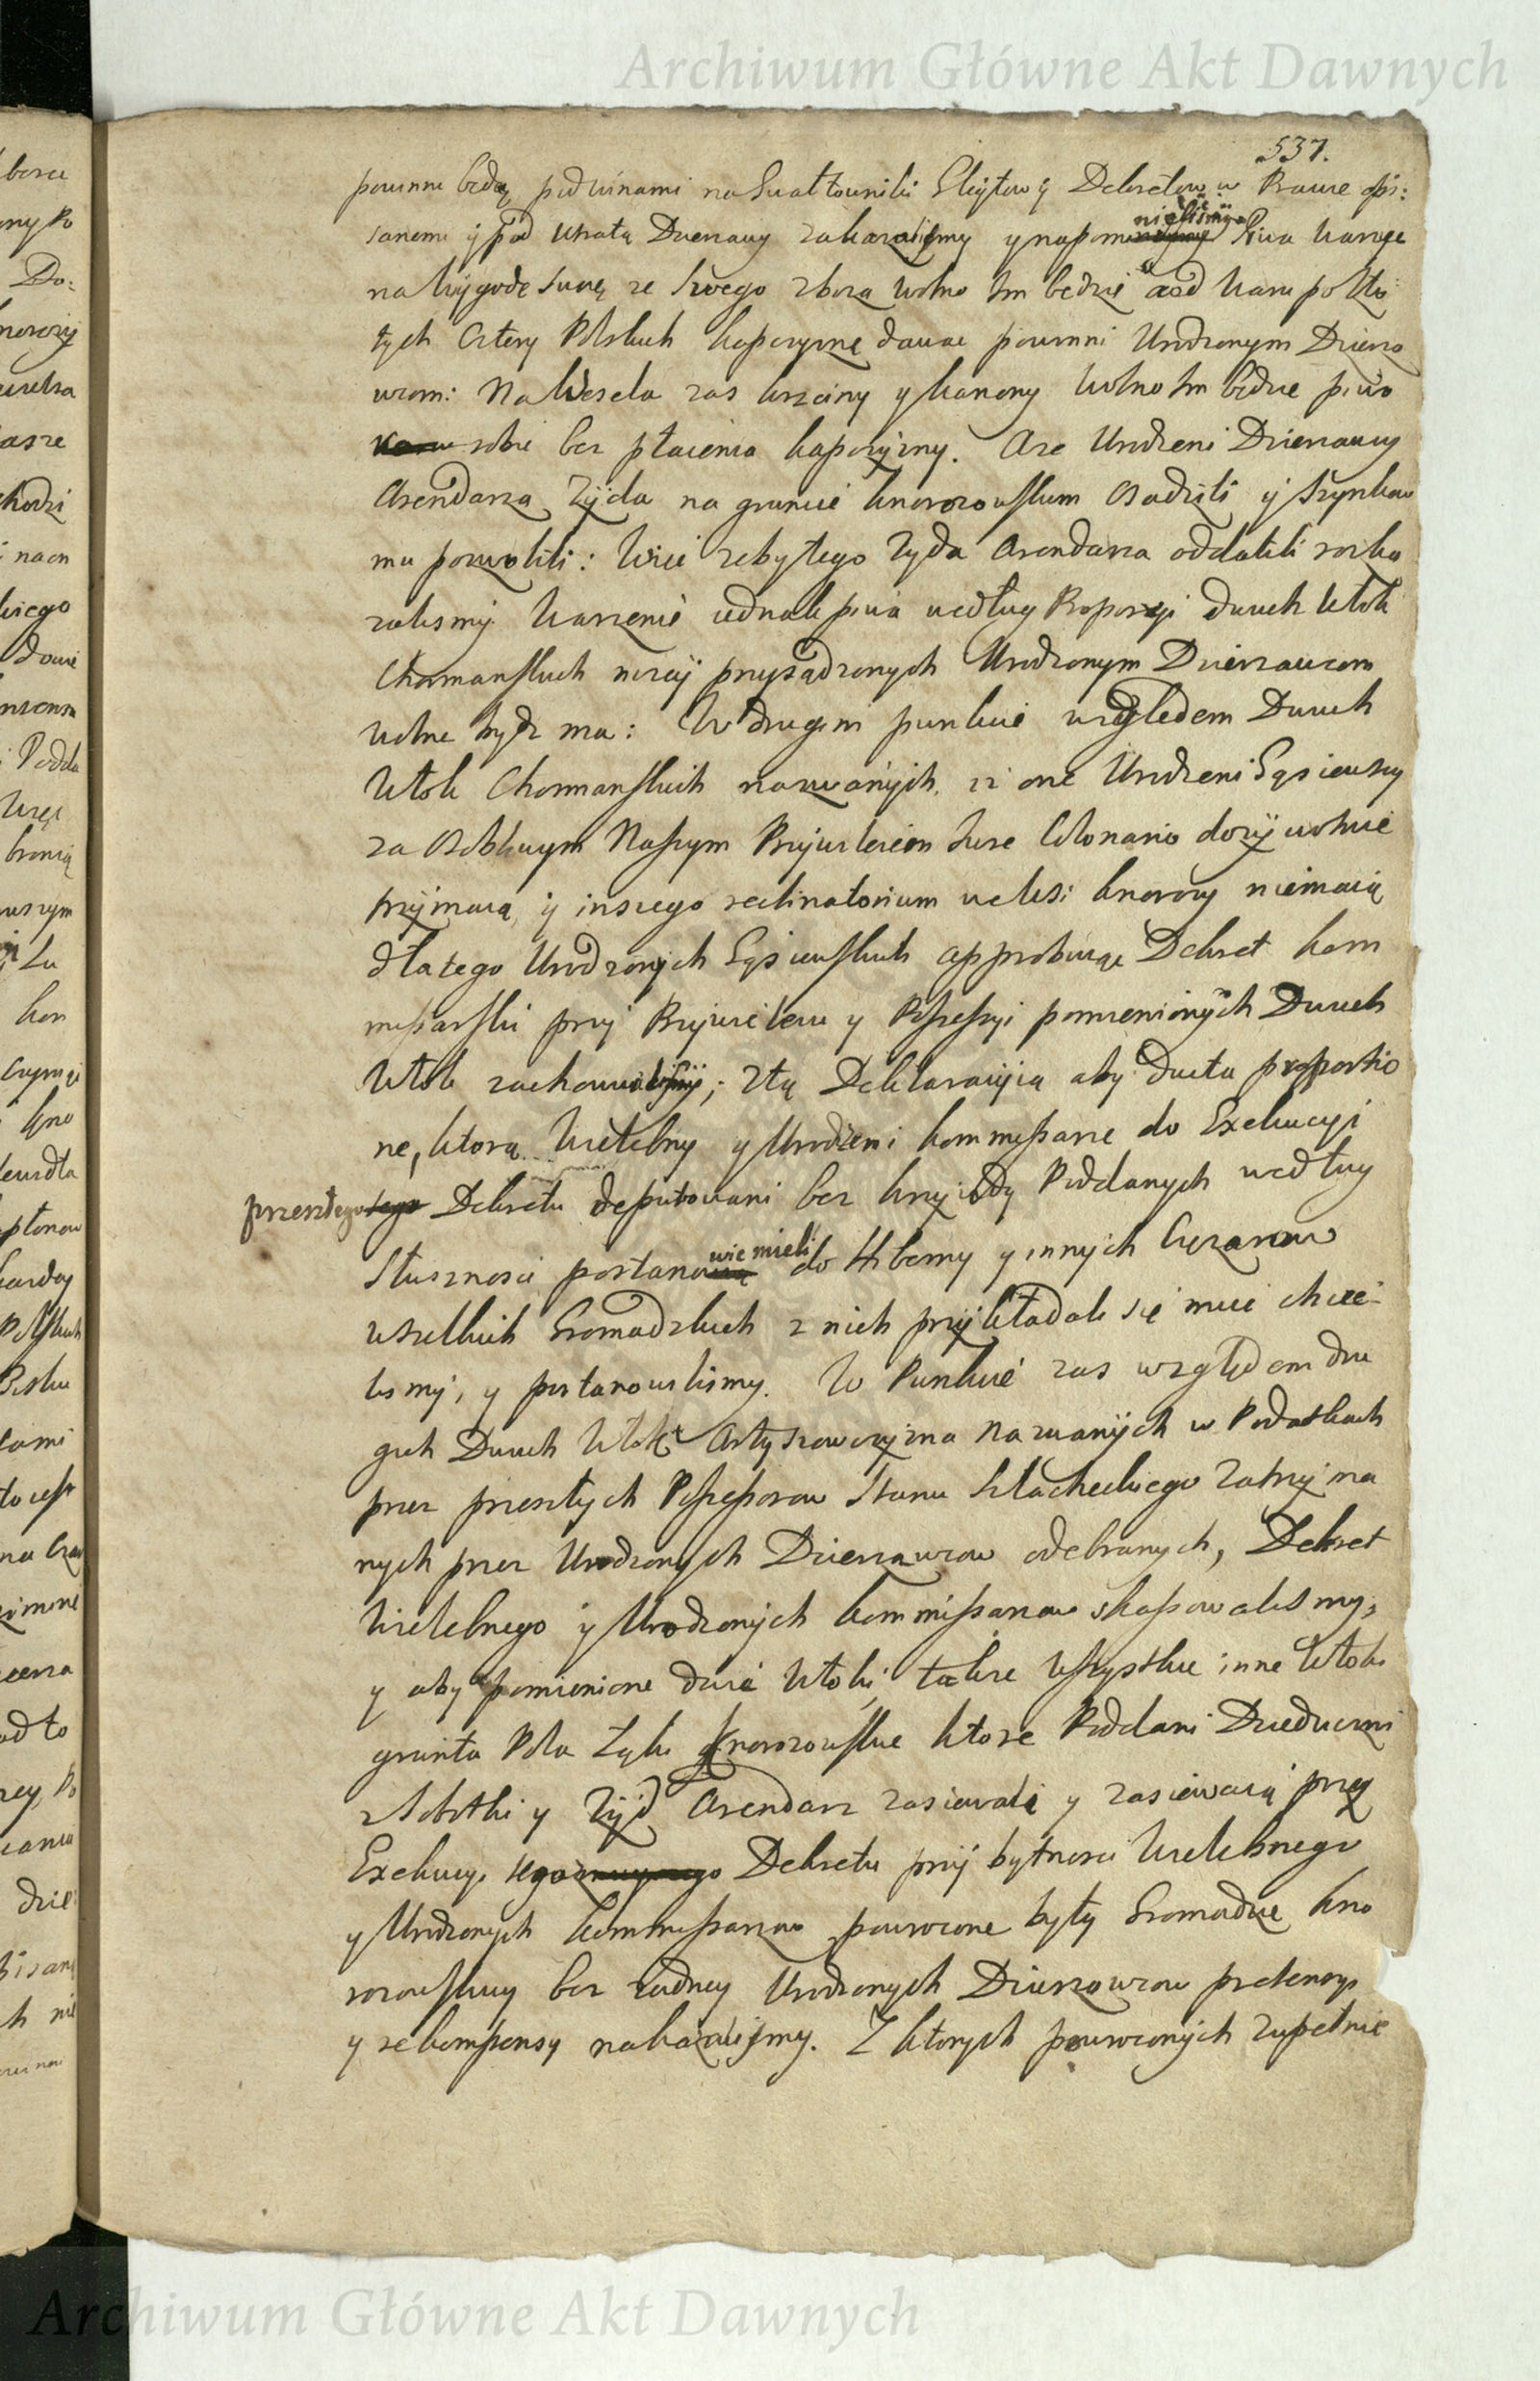 Archiwum Główne Akt Dawnych
537.
powinni będą, pod winami na Gwałtowniki Gleytow y Dekretow w Prawie opi:
sanemi y pod utratą Dzierzawy zakazalismy y napomnielismy Piwa warzyc
na wygodę swoię ze swego zboza wolno Im będzie a od waru po Zło
tych Cztery Polskich kapczyznę dawac powinni Urodzonym Dzierza
wcom: Na Wesela zas krzciny y kanony wolno Im będzie piwo
sobie bez płacenia kapczyzny. Aze Urodzeni Dzierzawcy
Arendarza Zyda na gruncie knorozowskim osadzili y szynkow
mu pozwolili: Wiec zeby tego Zyda Arendarza oddalili roska
zalismy Warzenie iednak piwa według Proporcyi dwuch Włok
Chormanskich nizey przysądzonych Urodzonym Dzierzawcom
wolne bydz ma: W drugim punkcie względem Dwuch
Włok Chormanskich nazwanych, iz one Urodzeni Gąsiewscy
za Osobliwym Naszym Przywileiem Iure Colonario dozywotnie
trzymaią, y inszego reclinatorium we Wsi knorozy niemaią
dlatego Urodzonych Gąsiewskich approbuiąc Dekret kom
missarski przy Przywileiu y Possessyi pomienionych Dwuch
Włok zachowalismy; Ztą Deklaracyią aby Iuxta proportio
ne, ktorą Wielebny y Urodzeni kommissarze do Exekucyi
przeszłego Dekretu deputowani bez krzywdy Poddanych według
Słusznosci postanowic mieli do Hiberny y innych Cięzarow
wszelkich Gromadzkich z nich przykładali się miec chcie-
lismy, y postanowilismy. W Punkcie zas względem dru
gich Dwuch Włok Artyszowczyzna Nazwanych w Podatkach
przez przeszłych Possessorow Stanu Szlacheckiego Zatrzyma
nych przez Urodzonych Dzierzawcow odebranych, Dekret
Wielebnego y Urodzonych kommissarzow skassowalismy,
y aby pomienione dwie Włoki, takze Wszystkie inne Włoki
grunta Pola Łąki knorozowskie ktore Poddani Dziedziczni
z Sobotki y Zyd Arendarz zasiewali y zasiewaią przy
Exekucyi Dekretu przy bytnosci Wielebnego
y Urodzonych kommissarzow powrocone były Gromadzie kno
rozowskiey bez zadney Urodzonych Dzierzawcow pretensyi
y rekompensy nakazalismy. Z ktorych powroconych zupełnie
Archiwum Główne Akt Dawnych